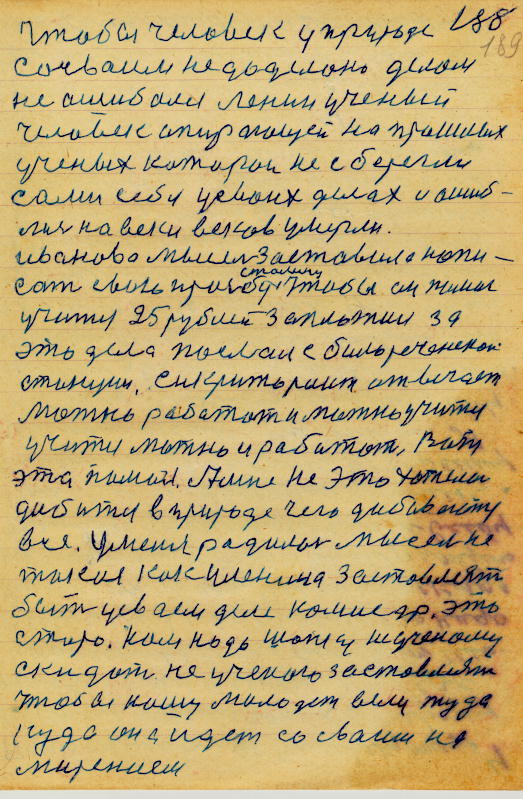 188
189
Чтобы человек у природе
сочваим недоделоно делом
не ошибался Ленин ученый
человек опирающей на прошлых
ученых которои не сберегли
сами себя усвоих делах и ошиб-
лис навеки веков умерли.
иванова мысль заставила напи-
сат свою прозбу сталину Чтобы он помог
учитя 25 рублей заплотил за
это дела послал с Белореченской
станции, Сикриториат отвечает
можно работоти можно учитя
учитя можно и работат, Вот
эта помощ. Амне не это хотелос
добитя в природе чего добиваетя
все. Уменя радилас мысел не
такая как Уленина заставлят
быт усваем деле комисар. это
старо. Нам надо шапку неученому
скидат. не ученого заставлят
чтобы нашу молодеж вели туда
куда она идет со своим на
мирением